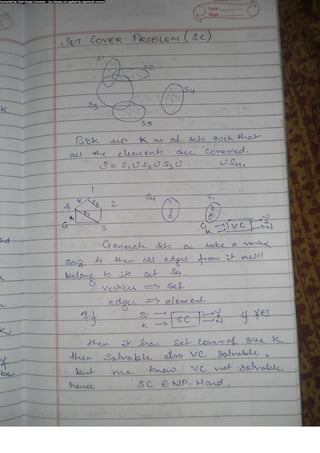 Date
Page
SET COVER PROBLEM (SC)
S1
S2
S3
S4
S5
Pick up K no of sets such that
all the elements are covered.
S1 U S2 U S3 U
1
4
2
3
G
S4
S1
G
K
VC
Y
N
Generate sets as take a vertex
say 4 then all edges from it will
belong to its set S4.
vertices => set
edges => element
If
Si
K
SC
Y
N
if YES
then it has set cover of size K
then solvable also VC solvable.
but we know VC not solvable
hence SC ∈ NP-Hard.